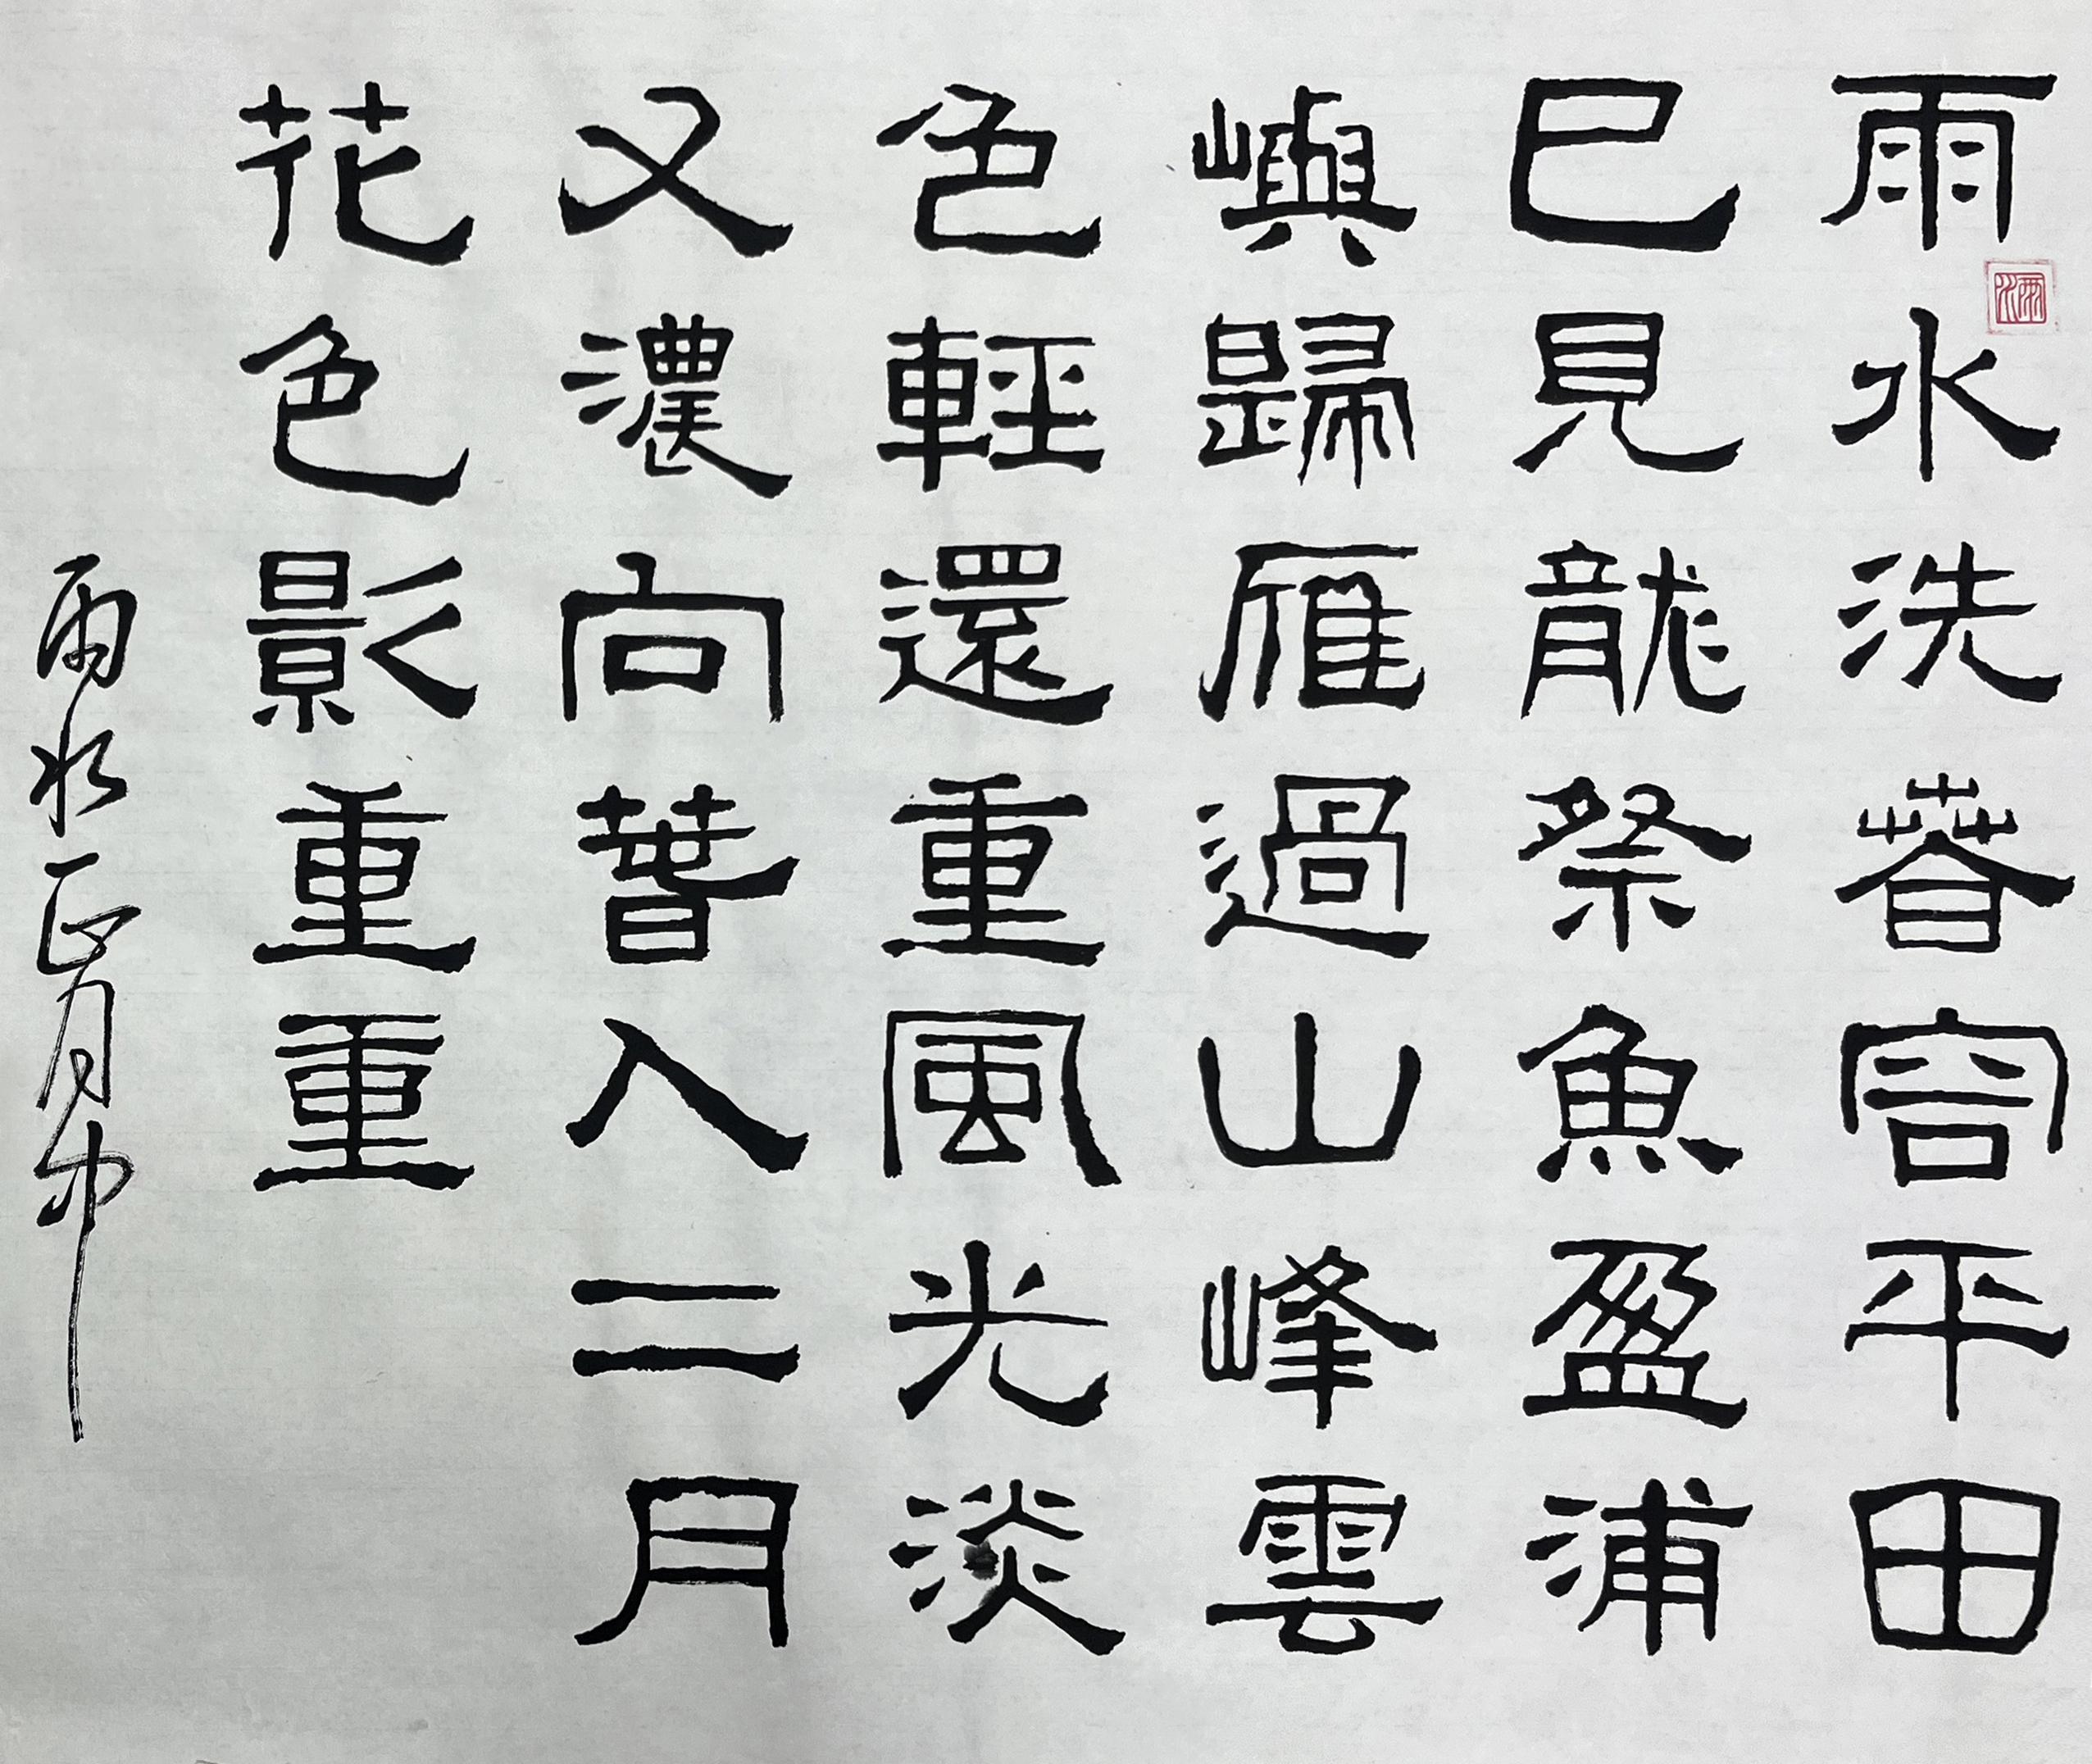 雨水洗春容平田
已見龍祭魚盈浦
嶼歸雁過山峰雲
色輕還重風光淡
又濃向春入二月
花色影重重
雨水正月中
雨水